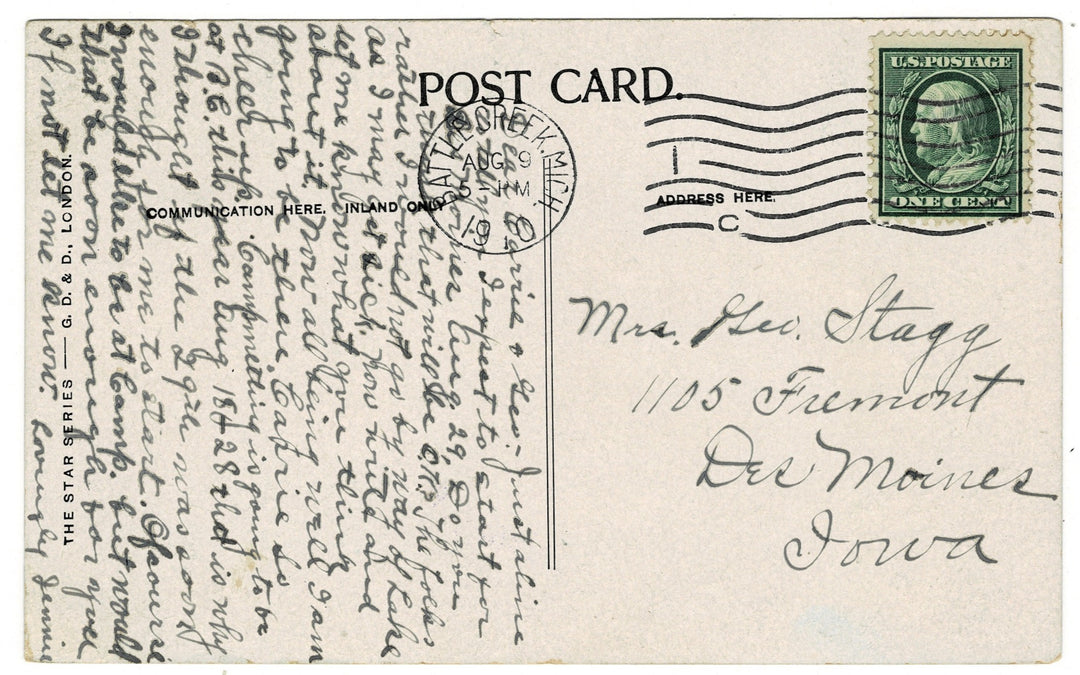 POST CARD.
BATTLE CREEK, MICH.
AUG 9
5 - PM
1910
1
C
U.S. POSTAGE
ONE CENT
COMMUNICATION HERE, INLAND ONLY
ADDRESS HERE.
THE STAR SERIES — G. D. & D., LONDON.
Mrs. Geo. Stagg
1105 Fremont
Des Moines
Iowa
Dear Carrie & Geo - Just a line
I expect to start for
Aug 29, Do you
that will be O.K. The folks
rather I would not go by way of Lake
as I may get sick. Now write and
let me know what you think
about it. Now all being well I am
going to be there. Carrie
cheer up. Campmeeting is going to be
at B.C. this year Aug 18-28 that is why
I thought if the 29th was soon
enough for me to start. Of course
I would like to be at Camp. but would
that be soon enough for you
If not let me know.
Lovingly Jennie